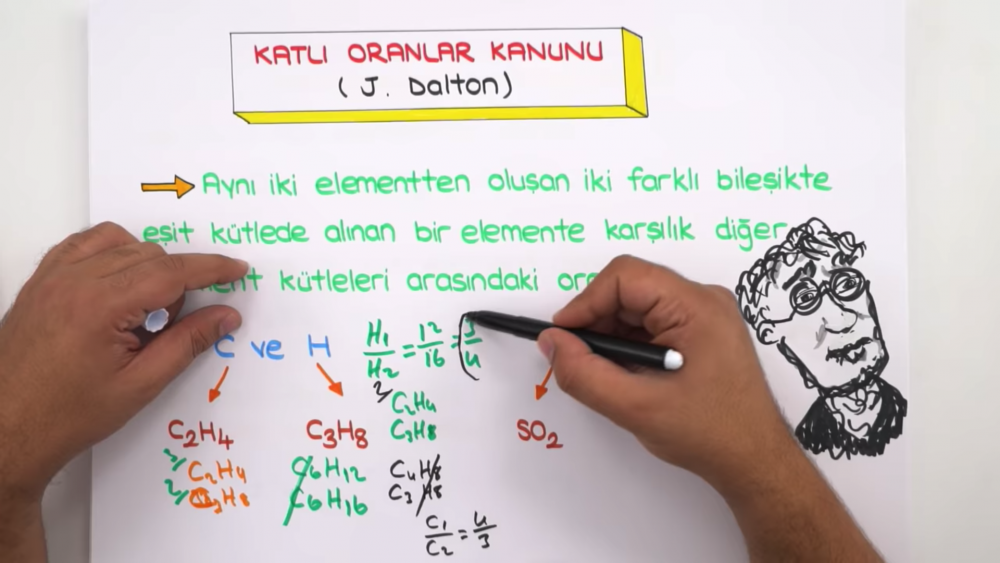 KATLI ORANLAR KANUNU
( J. Dalton)
Aynı iki elementten oluşan iki farklı bileşikte
eşit kütlede alınan bir elemente karşılık diğer
kütleleri arasındaki
C ve H
H₁/H₂ = 12/16 = (3/4
C₂H₄
C₃H₈
SO₂
2/ C₂H₄
C₃H₈
3/ C₂H₄
2/ C₃H₈
C₆H₁₂
C₆H₁₆
C₄H₈
C₃H₈
C₁/C₂ = 4/3